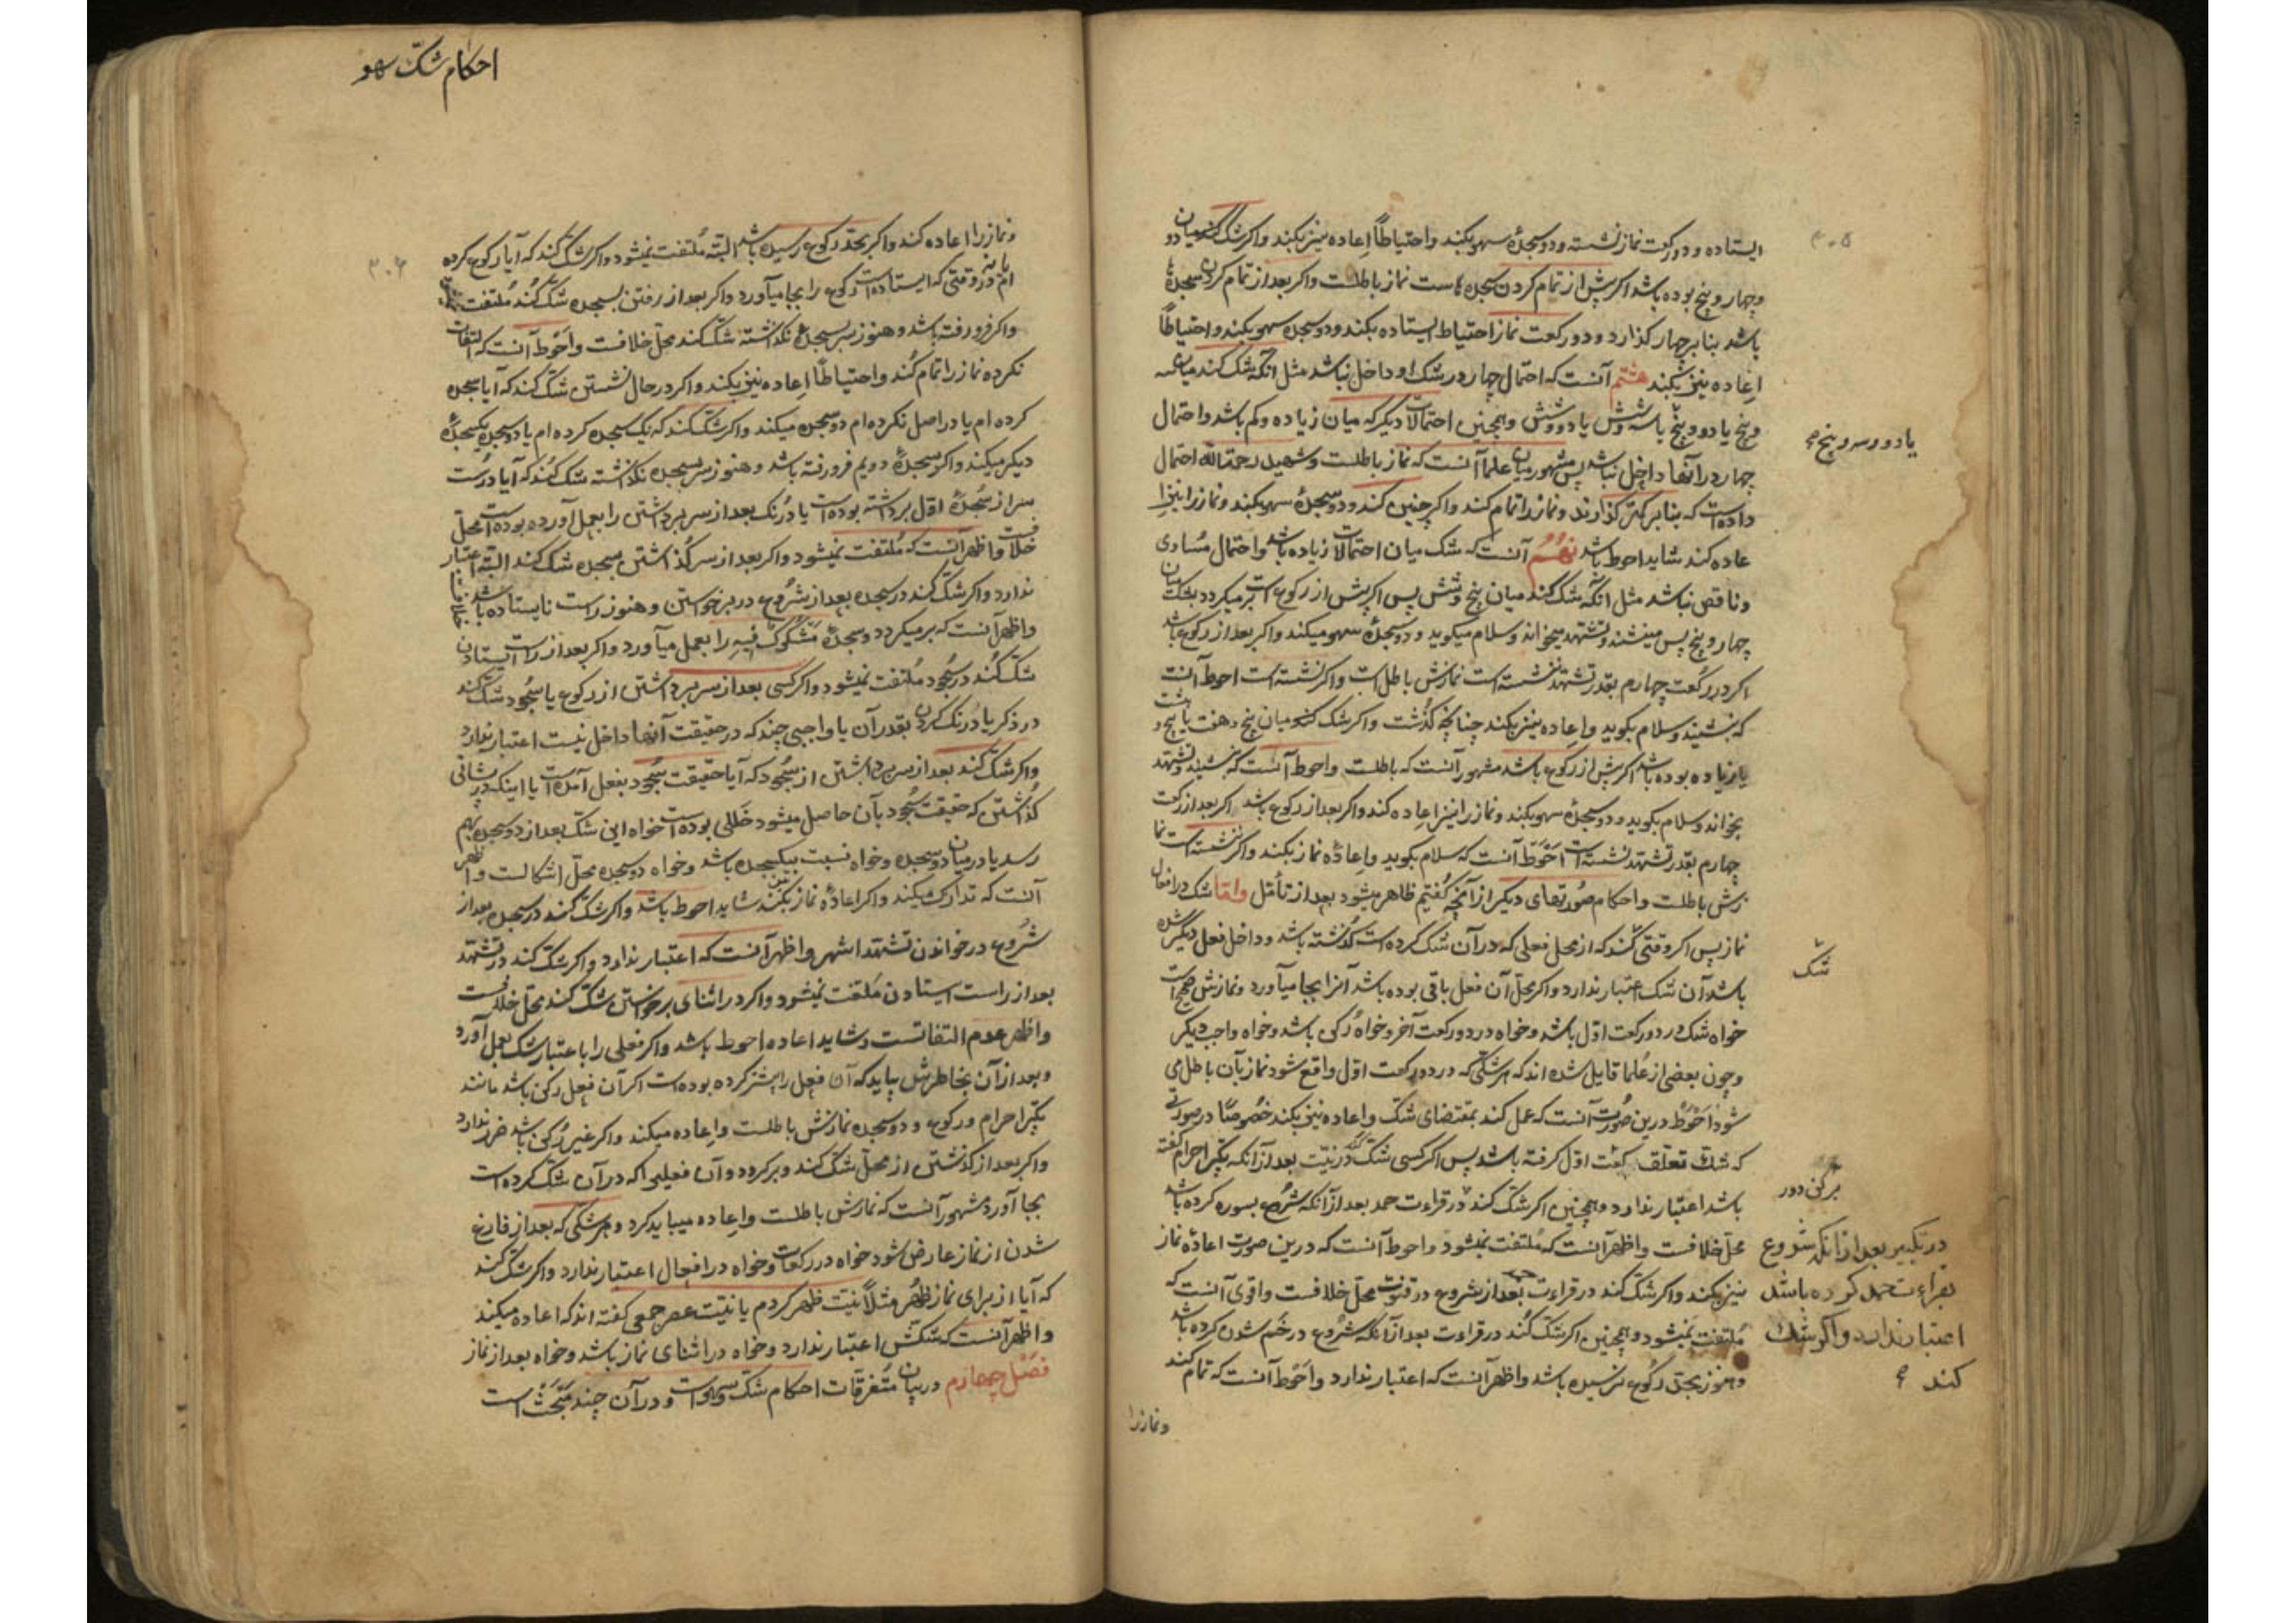 ۳۰۵
ایستاده و دو رکعت نماز نشسته و دو سجدهٔ سهو بکند و احتیاطاً اعاده نیز بکند و اکر شک کند میان دو
و چهار و پنج بوده باشد اکر پیش از تمام کردن سجده هاست نماز باطلست و اکر بعد از تمام کردن سجدها
باشد بنا بر چهار کذارد و دو رکعت نماز احتیاط ایستاده بکند و دو سجده سهو بکند و احتیاطاً
اعاده نیز بکند هشتم آنست که احتمال چهار در شک او داخل نباشد مثل آنکه شک کند میان سه
و پنج یا دو و پنج یا سه و شش یا دو و شش و همچنین احتمالات دیکر که میان زیاده و کم باشد و احتمال
یا دو و سه و پنج صح
چهار در آنها داخل نباشد پس مشهور میان علما آنست که نماز باطلست و شهید رحمه الله احتمال
داده است که بنا بر کمتر کذارند و نماز را تمام کند و اکر چنین کند و دو سجدهٔ سهو بکند و نماز را نیز ا
عاده کند شاید احوط باشد نهم آنست که شک میان احتمالات زیاده باشد و احتمال مساوی
و ناقص نباشد مثل آنکه شک کند میان پنج و شش پس اکر پیش از رکوع است بر میکردد بشک میان
چهار و پنج پس مینشند و تشهد میخواند و سلام میکوید و دو سجدهٔ سهو میکند و اکر بعد از رکوع باشد
اکر در رکعت چهارم بقدر تشهد ننشسته است نمازش باطل است و اکر نشسته است احوط آنست
که بنشیند و سلام بکوید و اعاده نیز بکند چنانچه کذشت و اکر شک کند میان پنج و هفت یا پنج و هشت
یا زیاده بوده باشد اکر پیش از رکوع باشد مشهور آنست که باطلست و احوط آنست که بنشیند و تشهد
بخواند و سلام بکوید و دو سجدهٔ سهو بکند و نماز را نیز اعاده کند و اکر بعد از رکوع باشد اکر بعد از رکعت
چهارم بقدر تشهد نشسته است احوط آنست که سلام بکوید و اعادهٔ نماز بکند و اکر ننشسته است نما
زش باطلست و احکام صورتهای دیکر از آنچه کفتیم ظاهر میشود بعد از تأمل و اما شک در افعال
نماز پس اکر وقتی کند که از محل فعلی که در آن شک کرده است کذشته باشد و داخل فعل دیکر شده
شک
باشد آن شک اعتبار ندارد و اکر محل آن فعل باقی بوده باشد آنرا بجا میآورد و نمازش صحیح است
خواه شک در دو رکعت اول باشد و خواه در دو رکعت آخر و خواه رکن باشد و خواه واجب دیکر
و چون بعضی از علما قایل شده اند که هر شکی که در دو رکعت اول واقع شود نماز بآن باطل می
شود احوط درین صورت آنست که عمل کند بمقتضای شک و اعاده نیز بکند خصوصا در صورتی
که شک تعلق کرفته باشد پس اکر کسی شک کند در نیت بعد از آنکه تکبیر احرام کفته
برکن دور
باشد اعتبار ندارد و همچنین اکر شک کند در قراءت حمد بعد از آنکه شروع بسوره کرده باشد
در تکبیر بعد از آنکه شروع
بقراءت حمد کرده باشد
اعتبار ندارد و اکر شک
کند
محل خلافست و اظهر آنست که ملتفت نمیشود و احوط آنست که درین صورت اعادهٔ نماز
نیز بکند و اکر شک کند در قراءت بعد از شروع در قنوت محل خلافست و اقوی آنست که
ملتفت نمیشود و همچنین اکر شک کند در قراءت بعد از آنکه شروع در خم شدن کرده باشد
و هنوز بحد رکوع نرسیده باشد و اظهر آنست که اعتبار ندارد و احوط آنست که تمام کند
و نماز را
احکام شک سهو
۳۰۶
و نماز را اعاده کند و اکر بحد رکوع رسیده باشد البته ملتفت نمیشود و اکر شک کند که آیا رکوع کرده
ام یا نه در وقتی که ایستاده است رکوع را بجا میآورد و اکر بعد از رفتن بسجده شک کند ملتفت نمیشود
و اکر فرو رفته باشد و هنوز سر بسجدهٔ نکذاشته شک کند محل خلافست و احوط آنست که التفات
نکرده نماز را تمام کند و احتیاطاً اعاده نیز بکند و اکر در حال نشستن شک کند که آیا سجده
کرده ام یا در اصل نکرده ام دو سجده میکند و اکر شک کند که یک سجده کرده ام یا دو سجده یکسجدهٔ
دیکر میکند و اکر سجدهٔ دویم فرو رفته باشد و هنوز سر بسجده نکذاشته شک کند که آیا درست
سر از سجدهٔ اول برداشته بوده است یا درنک بعد از سر برداشتن را بعمل آورده بوده است محل
خلافست و اظهر آنست که ملتفت نمیشود و اکر بعد از سر کذاشتن بسجده شک کند البته اعتبار
ندارد و اکر شک کند در سجده بعد از شروع در برخواستن و هنوز راست نایستاده باشد
و اظهر آنست که بر میکردد و سجدهٔ مشکوک فیه را بعمل میآورد و اکر بعد از راست ایستادن
شک کند در سجود ملتفت نمیشود و اکر کسی بعد از سر برداشتن از رکوع یا سجود شک کند
در ذکر یا درنک کردن بقدر آن یا واجبی چند که در حقیقت آنها داخل نیست اعتبار ندارد
و اکر شک کند بعد از سر برداشتن از سجود که آیا حقیقت سجود بفعل آمده است یا اینکه در پیشانی
کذاشتن که حقیقت سجود بآن حاصل میشود خللی بوده است خواه این شک بعد از دو سجده بهم
رسد یا در میان دو سجده و خواه نسبت بیکسجده باشد و خواه دو سجده محل اشکالست و اظهر
آنست که تدارک میکند و اکر اعادهٔ نماز نیز بکند شاید احوط باشد و اکر شک کند در سجده بعد از
شروع در خواندن تشهد اشهر و اظهر آنست که اعتبار ندارد و اکر شک کند در تشهد
بعد از راست ایستادن ملتفت نمیشود و اکر در اثنای برخواستن شک کند محل خلافست
و اظهر عدم التفاتست و شاید اعاده احوط باشد و اکر فعلی را باعتبار شک بعمل آورد
و بعد از آن بخاطرش بیاید که آن فعل را پیشتر کرده بوده است اکر آن فعل رکن باشد مانند
تکبیر احرام و رکوع و دو سجده نمازش باطلست و اعاده میکند و اکر غیر رکن باشد ضرر ندارد
و اکر بعد از کذشتن از محل شک کند و برکردد و آن فعلیرا که در آن شک کرده است
بجا آورد مشهور آنست که نمازش باطلست و اعاده میباید کرد و هر شکی که بعد از فارغ
شدن از نماز عارض شود خواه در رکعات و خواه در افعال اعتبار ندارد و اکر شک کند
که آیا از برای نماز ظهر مثلاً نیت ظهر کردم یا نیت عصر جمعی کفته اند که اعاده میکند
و اظهر آنست که شکش اعتبار ندارد و خواه در اثنای نماز باشد و خواه بعد از نماز
فصل چهارم در بیان متفرقات احکام شک و سهو است و در آن چند مبحث است